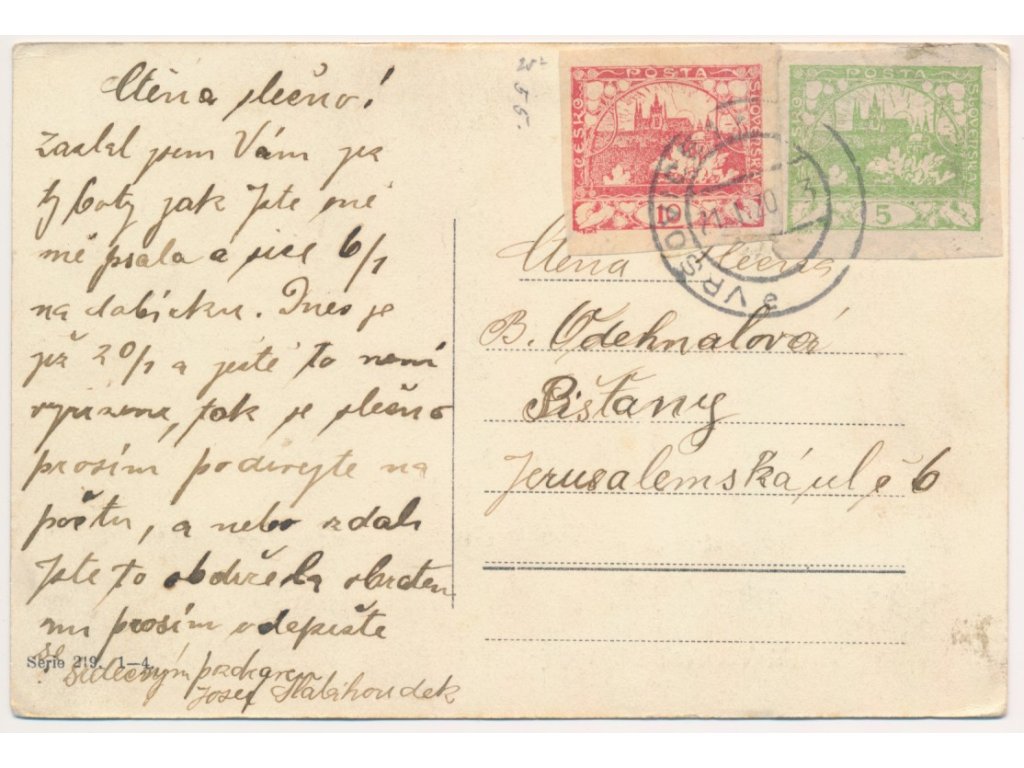 Ctěná slečno!
zaslal jsem Vám ja
ty boty jak Jste mě
mě psala a sice 6/1
na dobírku. Dnes je
již 20/1 a ještě to není
tak je slečno
prosím podivejte na
poštu, a nebo zdali
Jste to obdržela obratem
mi prosím odepište
se srdečným pozdravem
Josef
Serie 219. 1—4
25+
5 5.
POSTA
ČESKO
SLOVENSKÁ
10
POSTA
ČESKO
SLOVENSKÁ
5
VRŠO
Ctěná slečna
B. Odehnalová
Pišťany
Jerusalemská ul č 6